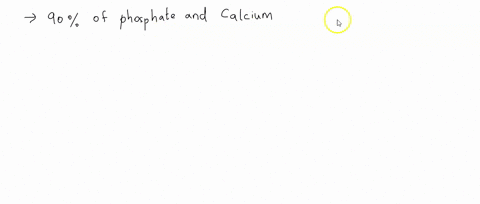 → 90% of phosphate and Calcium